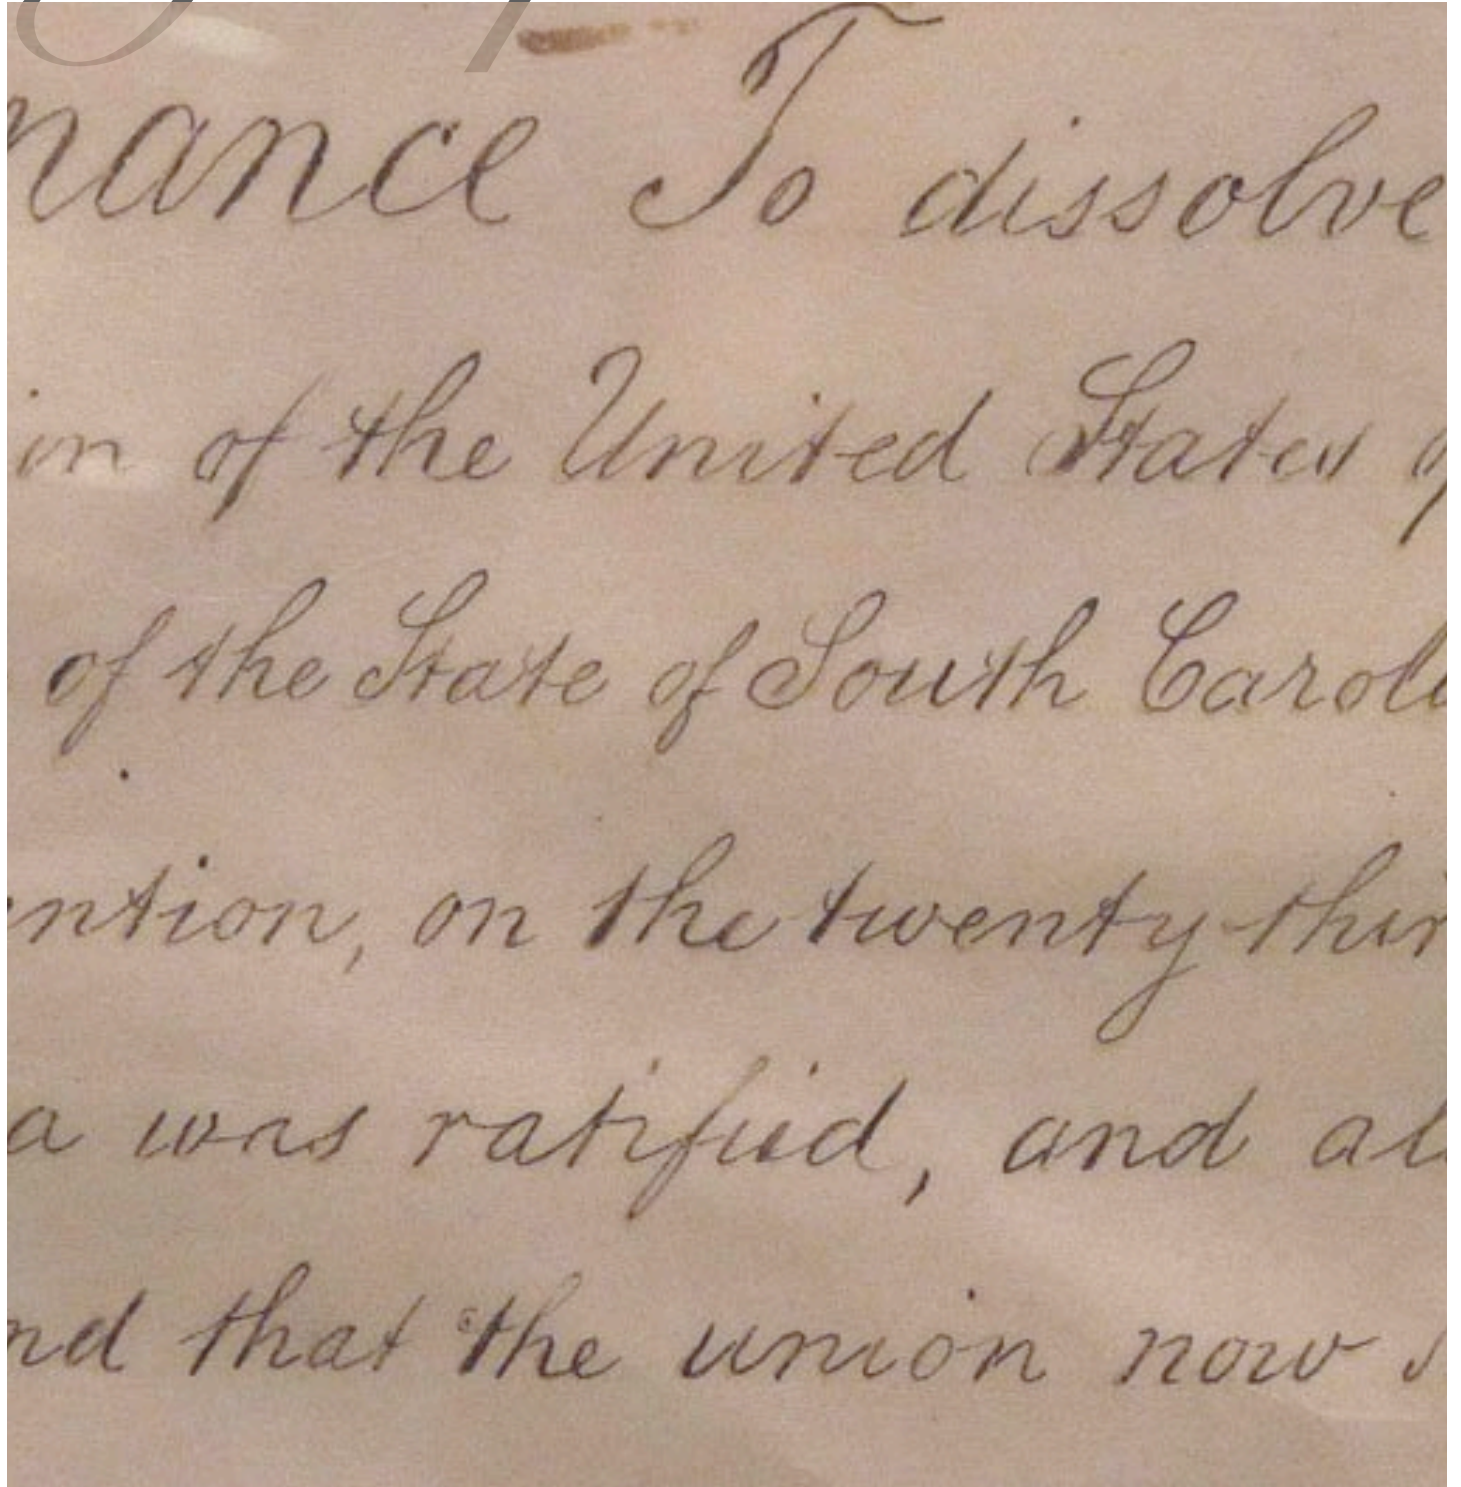 nance To dissolve
in of the United States
of the State of South Caroli
ntion, on the twenty-thir
a was ratified, and al
nd that the union now s